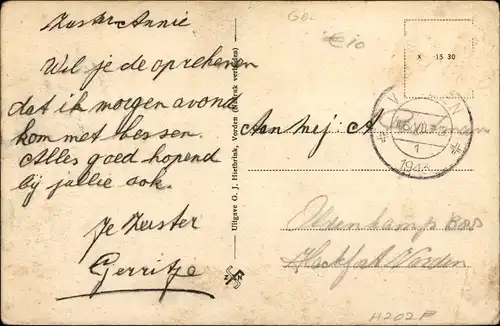 Zuster Annie
Wil je de opreheren
dat ik morgen avond
kom met bessen.
Alles goed hopend
bij jullie ook.
Je Zuster
Gerritje
Uitgave G. J. Hietbrink, Vorden (Nadruk verboden)
Go.
€10
X 15 30
V N
VII
1
1943
Aan mej A
Vorden
H202F